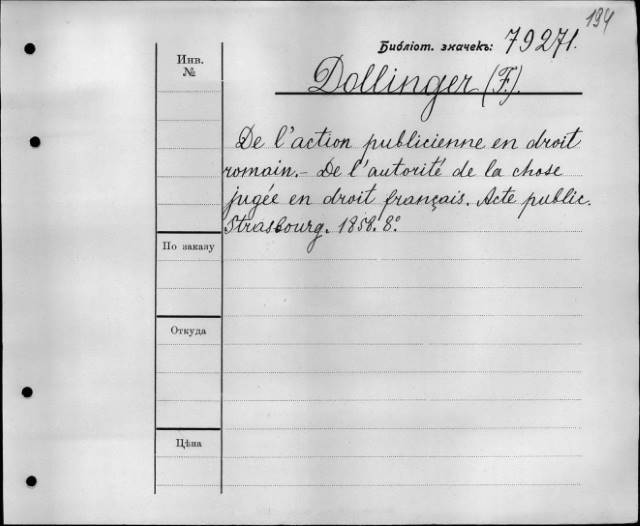 194
Библіот. значекъ: 79271.
Инв.
№
Dollinger (F.).
De l'action publicienne en droit
romain. – De l'autorité de la chose
jugée en droit français. Acte public.
Strasbourg. 1858. 8.º
По заказу
Откуда
Цѣна